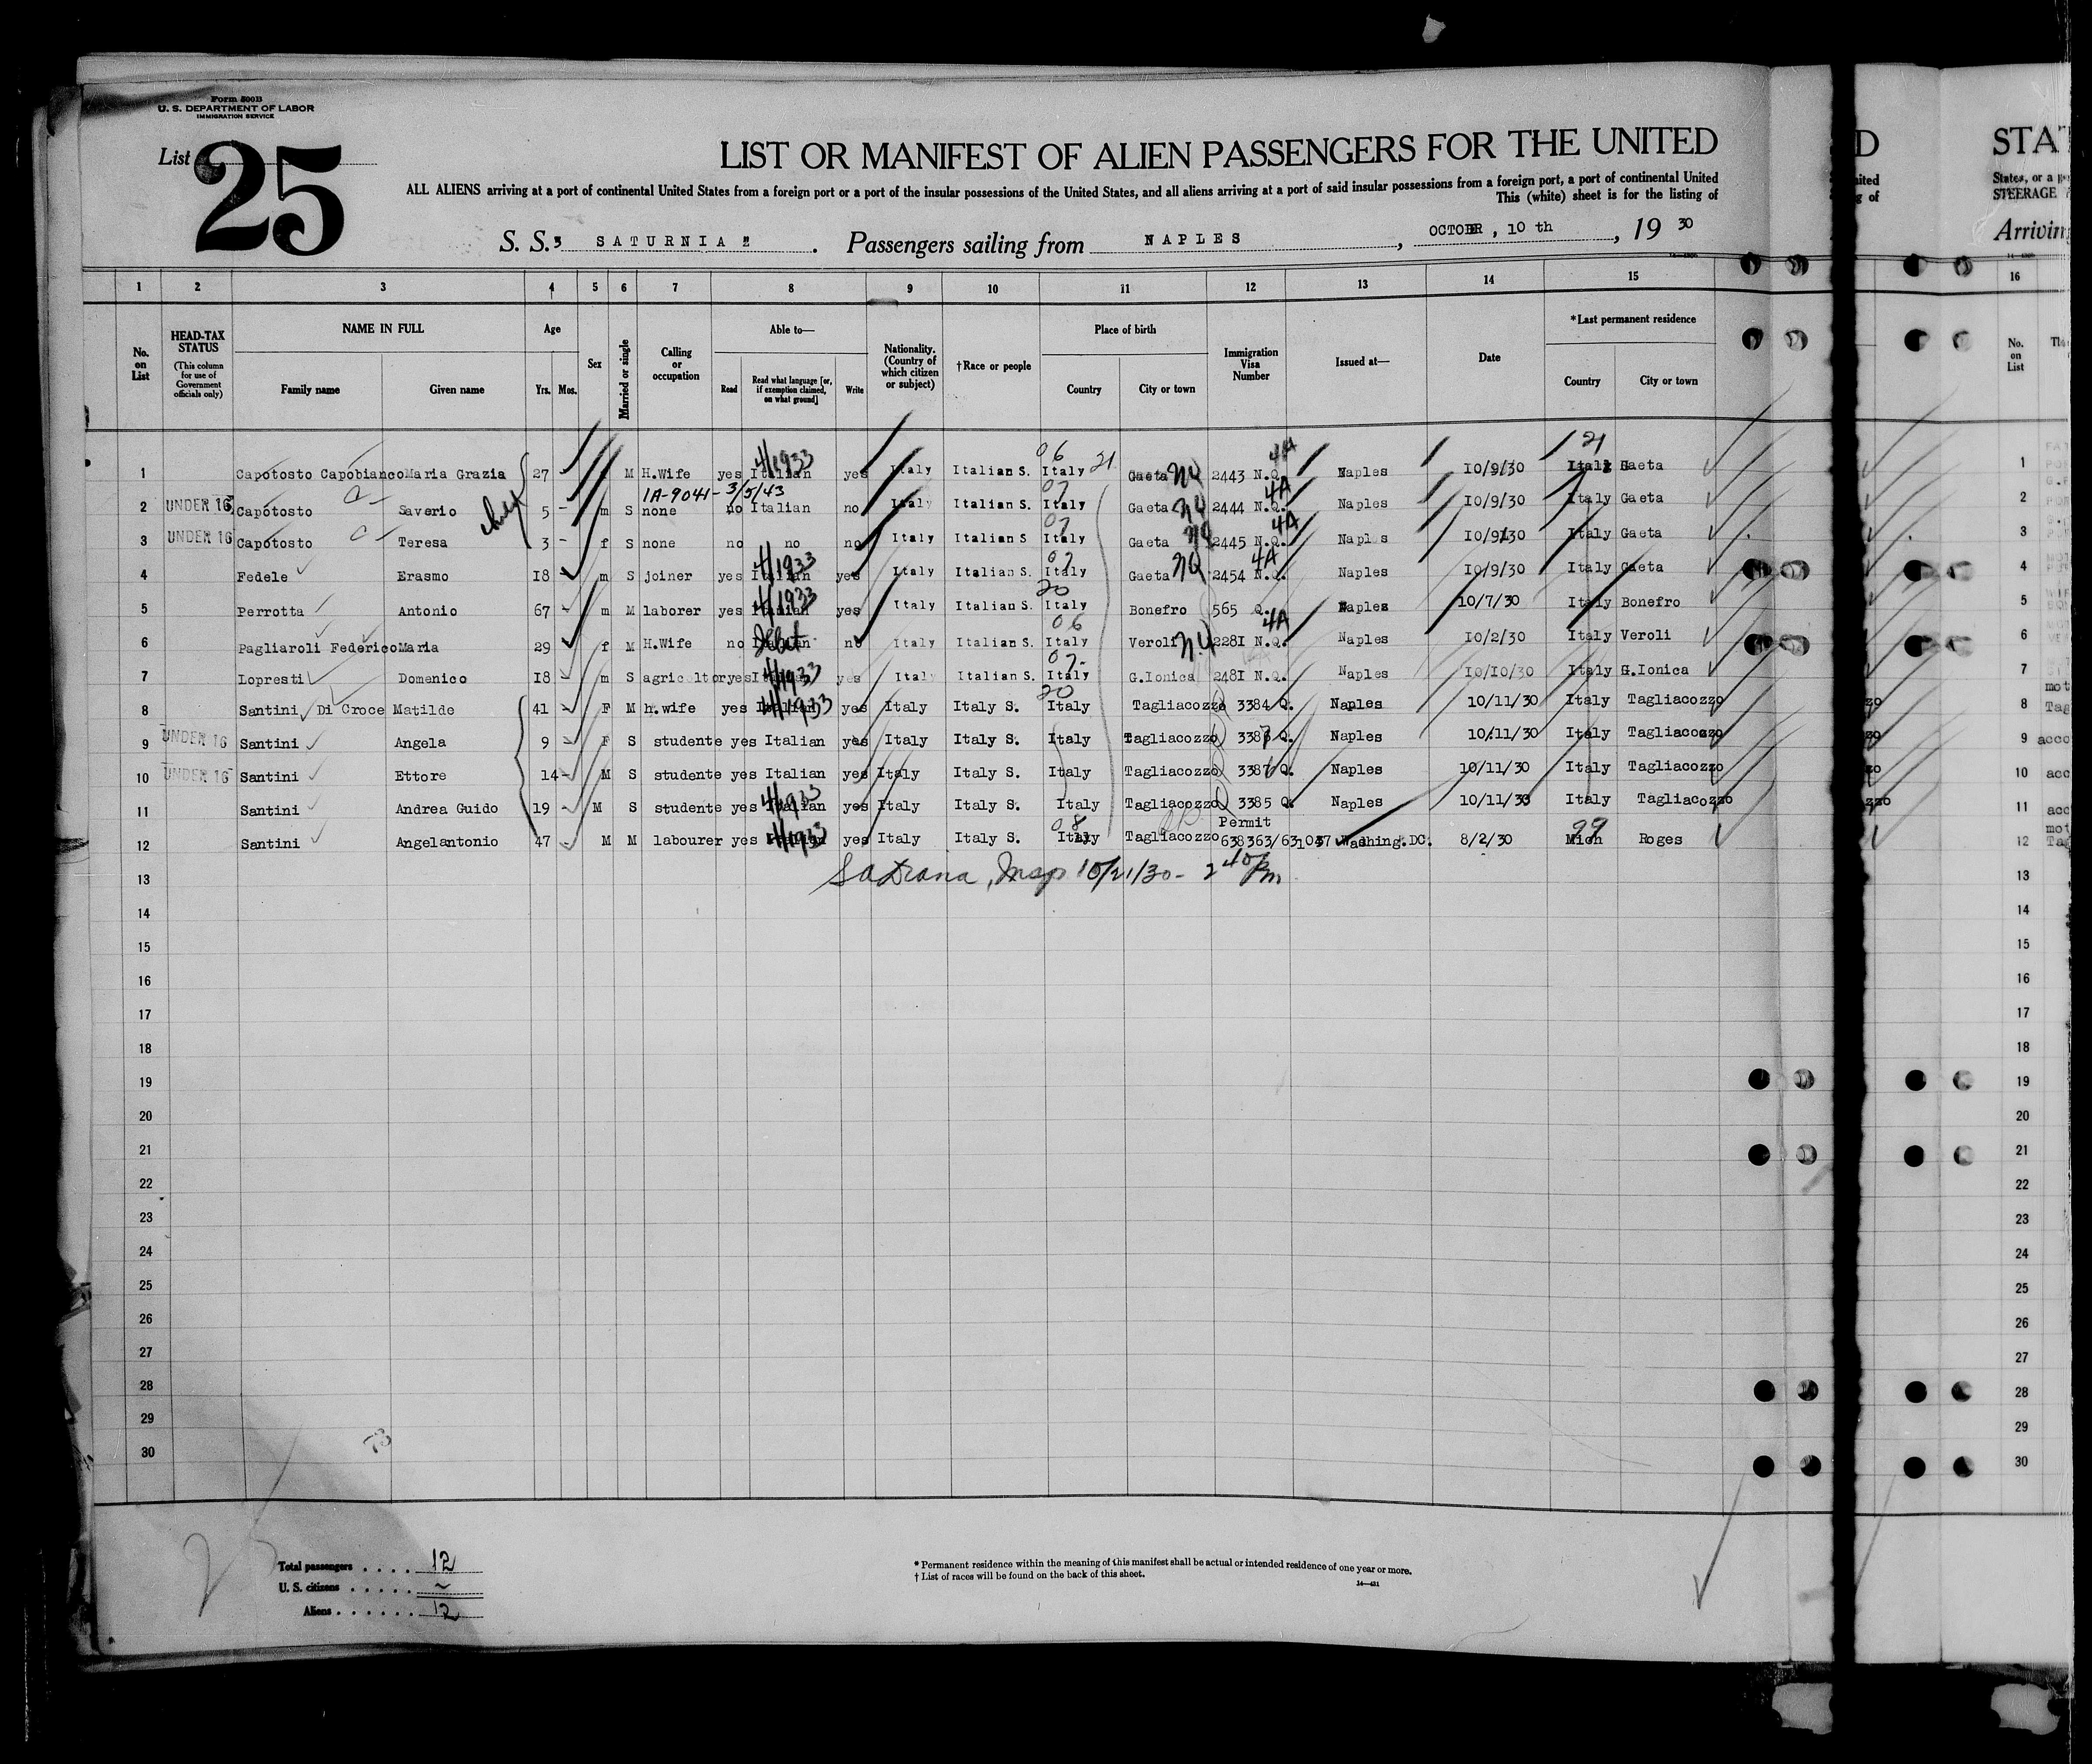 Form 500B
U. S. DEPARTMENT OF LABOR
IMMIGRATION SERVICE
List 25
LIST OR MANIFEST OF ALIEN PASSENGERS FOR THE UNITED
ALL ALIENS arriving at a port of continental United States from a foreign port or a port of the insular possessions of the United States, and all aliens arriving at a port of said insular possessions from a foreign port, a port of continental United
This (white) sheet is for the listing of
S. S. SATURNIA . Passengers sailing from NAPLES , OCTOBER , 10 th , 19 30
1 2 3 4 5 6 7 8 9 10 11 12 13 14 15
No. on List
HEAD-TAX STATUS (This column for use of Government officials only)
NAME IN FULL Family name Given name
Age Yrs. Mos.
Sex
Married or single
Calling or occupation
Able to— Read Read what language [or, if exemption claimed, on what ground] Write
Nationality. (Country of which citizen or subject)
†Race or people
Place of birth Country City or town
Immigration Visa Number
Issued at—
Date
*Last permanent residence Country City or town
1 Capotosto Capobianco Maria Grazia 27 M H.Wife yes Italian 4/1933 yes Italy Italian S. Italy 06 21 Gaeta NQ 2443 N.Q. 4A Naples 10/9/30 Italy 21 Gaeta
1A-9041- 3/5/43
2 UNDER 16 Capotosto Saverio 5 - m S none no Italian no Italy Italian S. Italy 07 Gaeta NQ 2444 N.Q. 4A Naples 10/9/30 Italy Gaeta
3 UNDER 16 Capotosto Teresa 3 - f S none no no no Italy Italian S Italy 07 Gaeta NQ 2445 N.Q. 4A Naples 10/9/30 Italy Gaeta
4 Fedele Erasmo 18 m S joiner yes Italian 4/1933 yes Italy Italian S. Italy 07 Gaeta NQ 2454 N.Q. 4A Naples 10/9/30 Italy Gaeta
5 Perrotta Antonio 67 - m M laborer yes Italian 4/1933 yes Italy Italian S. Italy 20 Bonefro 565 Q. Naples 10/7/30 Italy Bonefro
6 Pagliaroli Federico Maria 29 f M H.Wife no Italian no Italy Italian S. Italy 06 Veroli NQ 2281 N.Q. 4A Naples 10/2/30 Italy Veroli
7 Lopresti Domenico 18 - m S agricoltor yes Italian 4/1933 yes Italy Italian S. Italy 07 G.Ionica 2481 N.Q. Naples 10/10/30 Italy G.Ionica
8 Santini Di Croce Matilde 41 F M h.wife yes Italian 4/1933 yes Italy Italy S. Italy 20 Tagliacozzo 3384 Q. Naples 10/11/30 Italy Tagliacozzo
9 UNDER 16 Santini Angela 9 F S studente yes Italian yes Italy Italy S. Italy Tagliacozzo 3387 Q. Naples 10/11/30 Italy Tagliacozzo
10 UNDER 16 Santini Ettore 14 M S studente yes Italian yes Italy Italy S. Italy Tagliacozzo 3386 Q. Naples 10/11/30 Italy Tagliacozzo
11 Santini Andrea Guido 19 M S studente yes Italian 4/1933 yes Italy Italy S. Italy Tagliacozzo 3385 Q. Naples 10/11/30 Italy Tagliacozzo
Permit
12 Santini Angelantonio 47 M M labourer yes Italian 4/1933 yes Italy Italy S. Italy 08 Tagliacozzo 638363/631037 Washing.DC. 8/2/30 Mich 99 Roges
13 10/21/30 - 2 40 Pm
14
15
16
17
18
19
20
21
22
23
24
25
26
27
28
29
30
Total passengers . . . . 12
U. S. citizens . . . . . ~
Aliens . . . . . . 12
* Permanent residence within the meaning of this manifest shall be actual or intended residence of one year or more.
† List of races will be found on the back of this sheet.
D STA
States, or a
STEERAGE
Arrivin
16
No. on List
1
2
3
4
5
6
7
8 mot Tag
9 acco
10 acc
11 acc
12 mot Tag
13
14
15
16
17
18
19
20
21
22
23
24
25
26
27
28
29
30